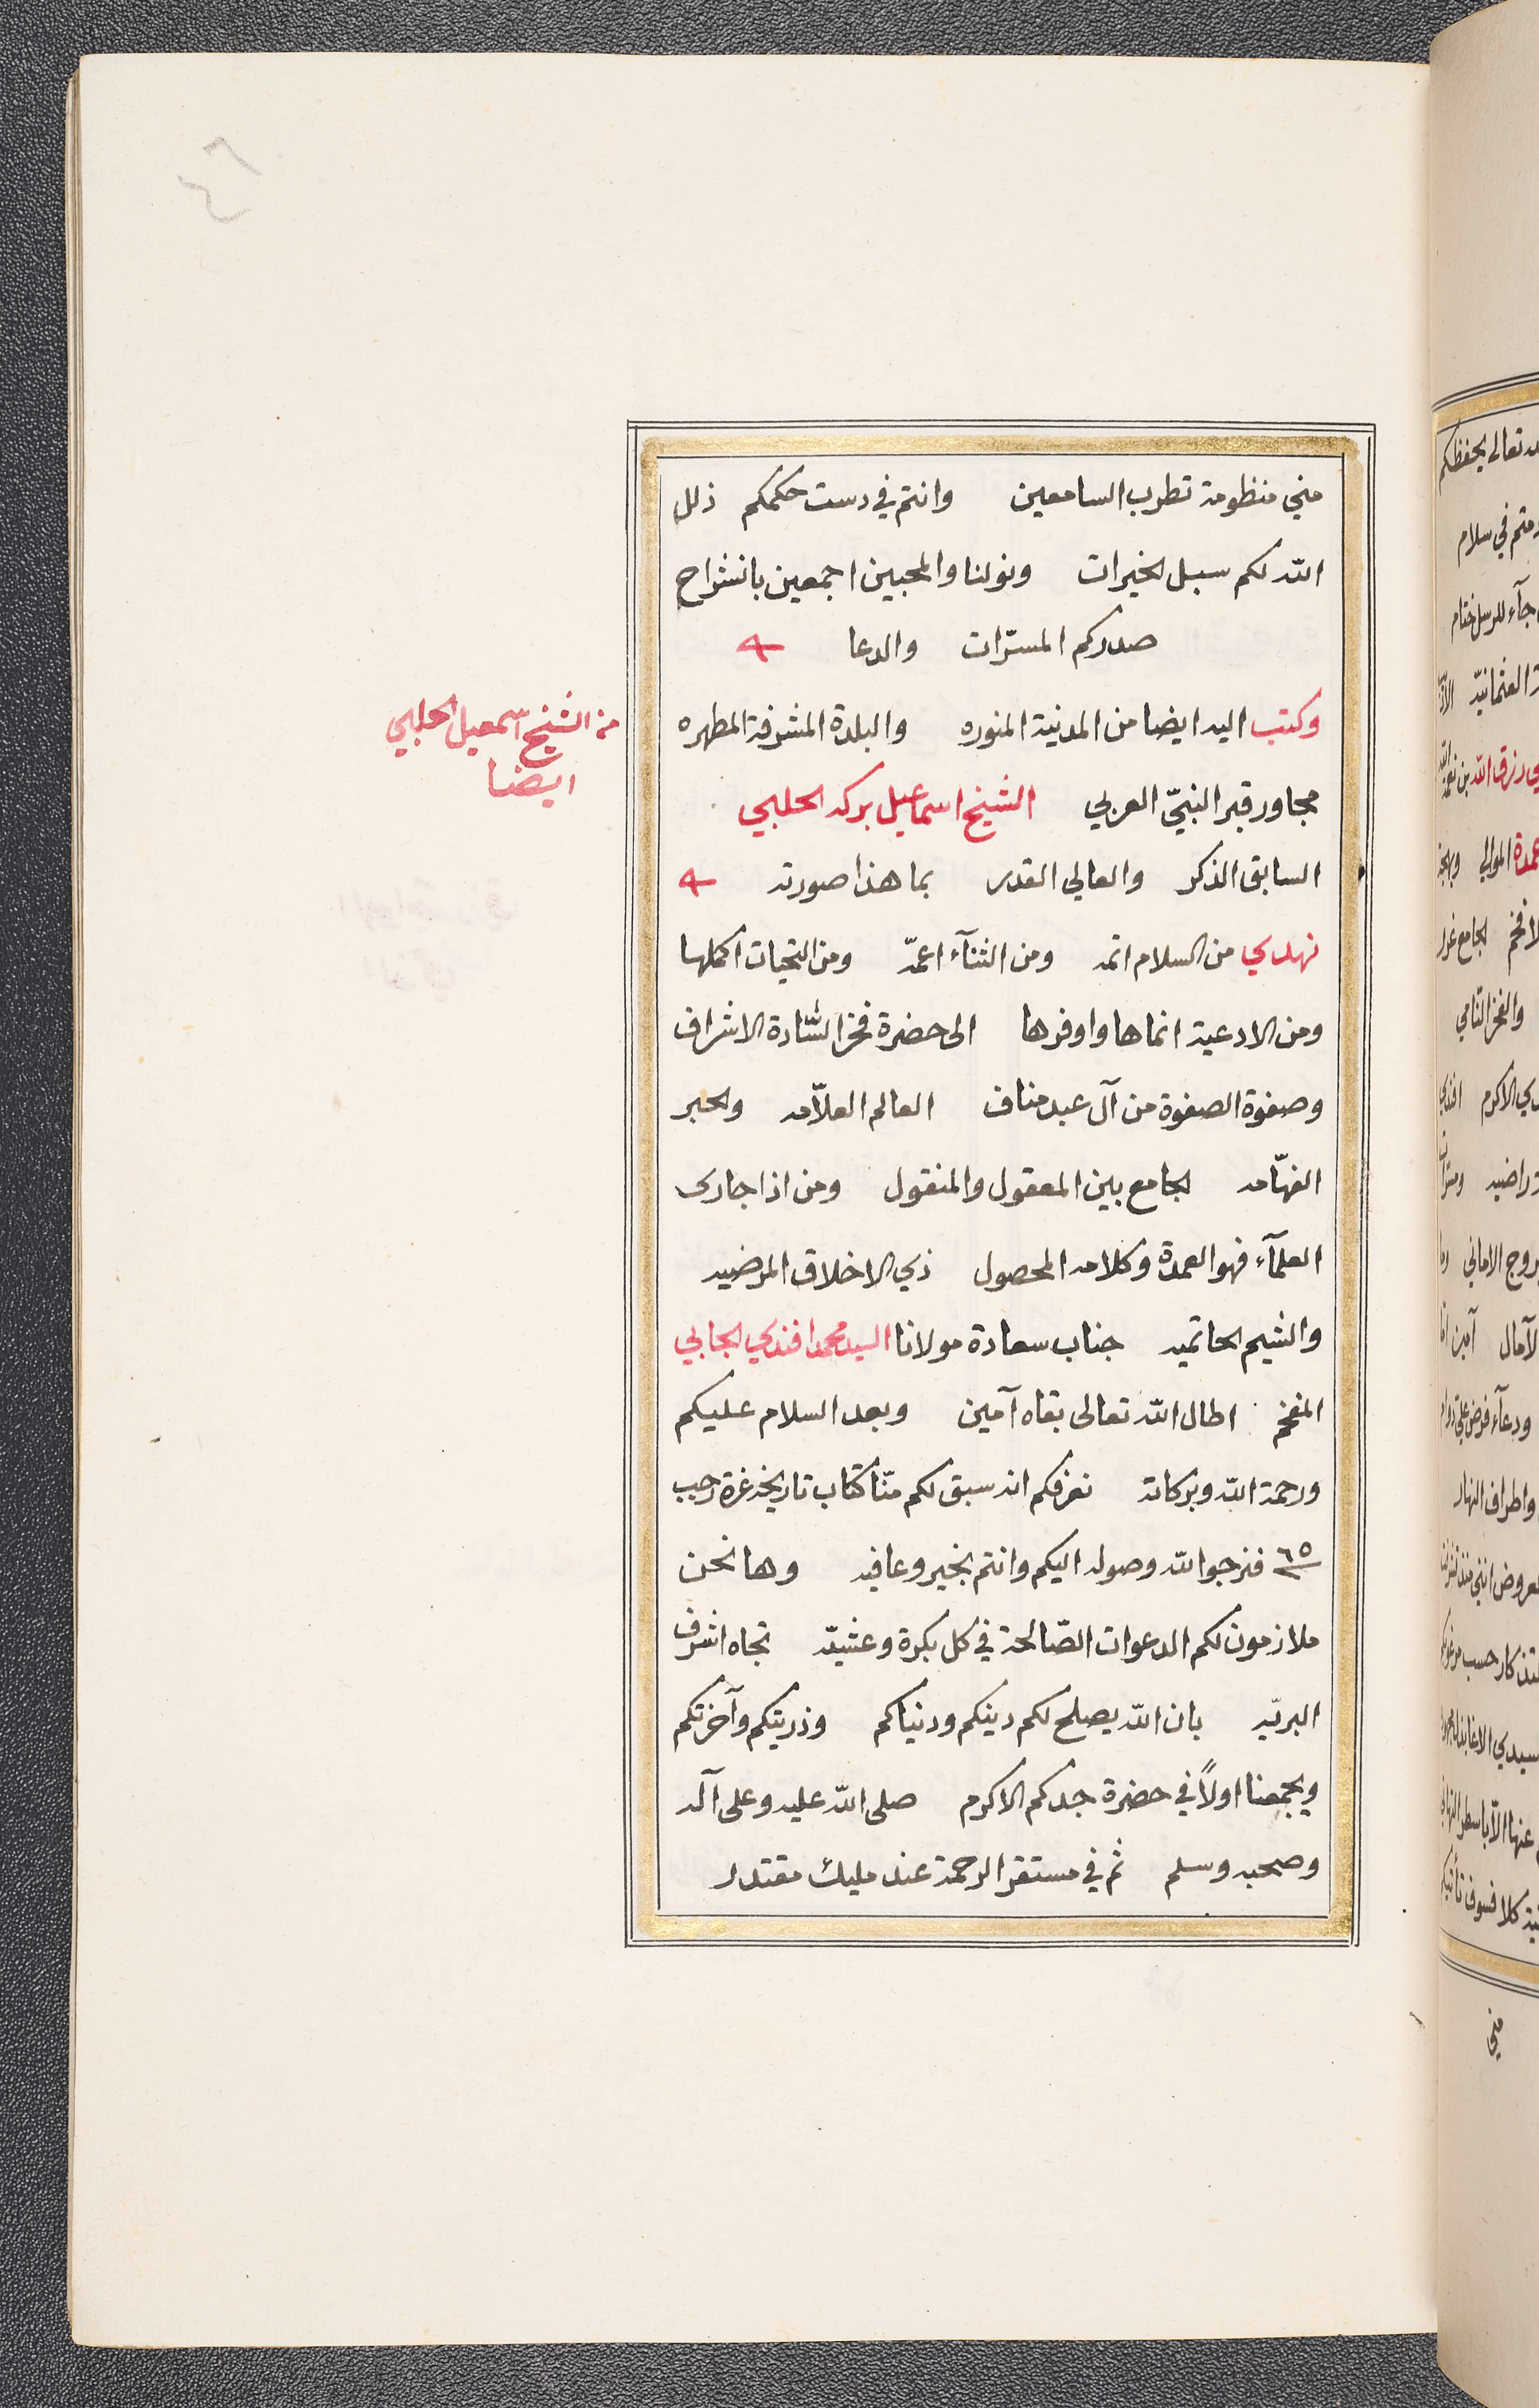 ٤٦
مني منظومة تطرب السامعين وانتم في دست حكمكم ذلل
الله لكم سبل الخيرات ونولنا والمحبين اجمعين بانشراح
صدركم المسرّات والدعا
وكتب اليه ايضا من المدينة المنوره والبلدة المشرفة المطهره
من الشيخ اسمعيل الحلبي
ايضا
مجاور قبر النبيّ العربي الشيخ اسماعيل بركه الحلبي
السابق الذكر والعالي القدر بما هذا صورته
نهدي من السلام اتمه ومن الثنآء اعمّه ومن التحيات اكملها
ومن الادعية انماها واوفرها الى حضرة فخر السّادة الاشراف
وصفوة الصفوة من آل عبد مناف العالم العلاّمه والحبر
الفهّامه الجامع بين المعقول والمنقول ومن اذا جارى
العلمآء فهو العمدة وكلامه المحصول ذي الاخلاق المرضيه
والشيم الحاتميه جناب سعادة مولانا السيد محمد افندي الجابي
المفخم اطال الله تعالى بقاه آمين وبعد السلام عليكم
ورحمة الله وبركاته نعرفكم انه سبق لكم منّا كتاب تاريخه غرة رجب
٦٥ فنرجو الله وصوله اليكم وانتم بخير وعافيه وها نحن
ملازمون لكم الدعوات الصّالحة في كل بكرة وعشيّه تجاه اشرف
البريّه بان الله يصلح لكم دينكم ودنياكم وذريتكم وآخرتكم
ويجمعنا اولاً في حضرة جدكم الاكرم صلى الله عليه وعلى آله
وصحبه وسلم ثم في مستقر الرحمة عند مليك مقتدر
تعالى يحفظكم
في سلام
جآء للرسل ختام
العثمانيّه
رزق الله بن نعمة الله
عمدة الموالي
الجامع
والفخر النامي
الاكرم
راضيه
الاماني
الآمال آمين
واطراف النهار
حسب
سيدي
عنها الاّ
كلا فسوف
مني